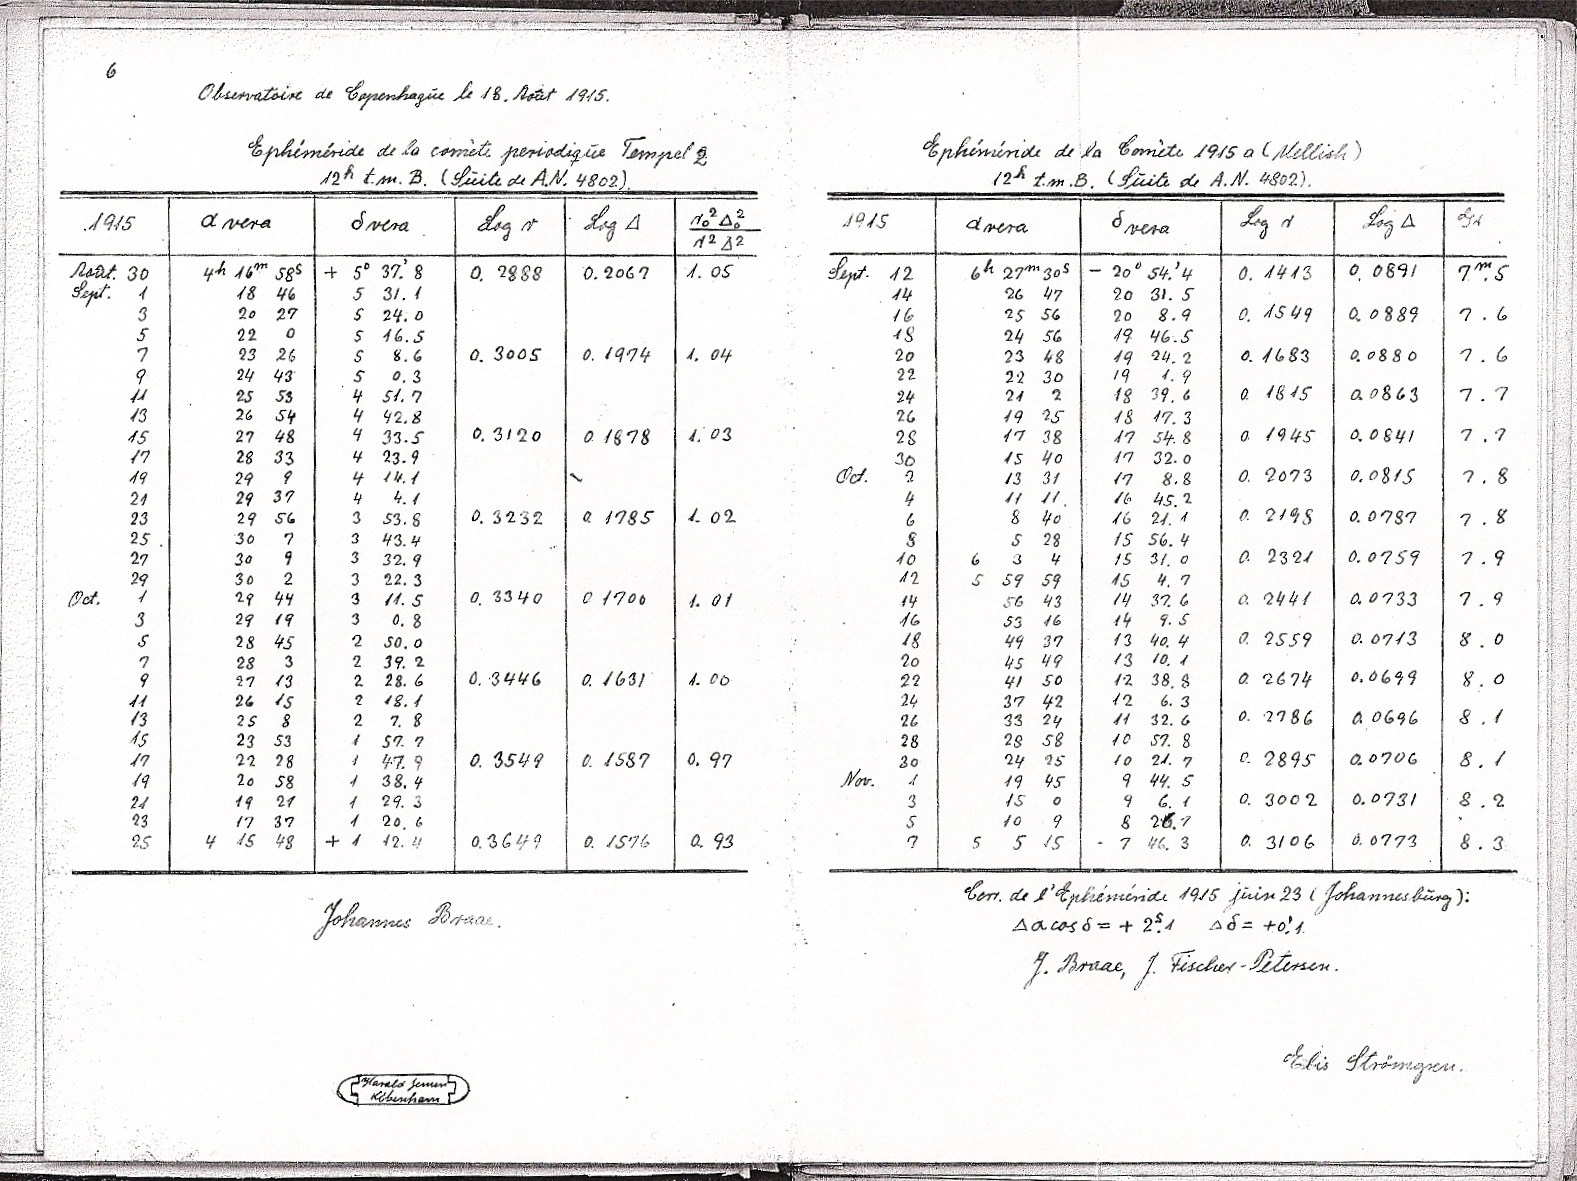 6
Observatoire de Copenhague le 18. Août 1915.
Ephéméride de la comète periodique Tempel 2
12h t.m. B. (Suite de A.N. 4802).
1915 α vera δ vera Log r Log Δ r₀² Δ₀² / r² Δ²
Août. 30 4h 16m 58s + 5° 37.'8 0. 2888 0.2067 1. 05
Sept. 1 18 46 5 31.1
3 20 27 5 24.0
5 22 0 5 16.5
7 23 26 5 8.6 0. 3005 0. 1974 1. 04
9 24 43 5 0.3
11 25 53 4 51.7
13 26 54 4 42.8
15 27 48 4 33.5 0.3120 0.1878 1.03
17 28 33 4 23.9
19 29 9 4 14.1
21 29 37 4 4.1
23 29 56 3 53.8 0.3232 0.1785 1.02
25 30 7 3 43.4
27 30 9 3 32.9
29 30 2 3 22.3
Oct. 1 29 44 3 11.5 0.3340 0 1700 1.01
3 29 19 3 0.8
5 28 45 2 50.0
7 28 3 2 39.2
9 27 13 2 28.6 0.3446 0.1631 1.00
11 26 15 2 18.1
13 25 8 2 7.8
15 23 53 1 57.7
17 22 28 1 47.9 0.3549 0.1587 0.97
19 20 58 1 38.4
21 19 21 1 29.3
23 17 37 1 20.6
25 4 15 48 + 1 12.4 0.3649 0.1576 0.93
Johannes Braae.
Harald Jensen
København
Ephéméride de la Comète 1915 a (Mellish)
12h t.m.B. (Suite de A.N. 4802).
1915 α vera δ vera Log r Log Δ Gr.
Sept. 12 6h 27m 30s - 20° 54.'4 0.1413 0.0891 7m.5
14 26 47 20 31.5
16 25 56 20 8.9 0.1549 0.0889 7.6
18 24 56 19 46.5
20 23 48 19 24.2 0.1683 0.0880 7.6
22 22 30 19 1.9
24 21 2 18 39.6 0.1815 0.0863 7.7
26 19 25 18 17.3
28 17 38 17 54.8 0.1945 0.0841 7.7
30 15 40 17 32.0
Oct. 2 13 31 17 8.8 0.2073 0.0815 7.8
4 11 11 16 45.2
6 8 40 16 21.1 0.2198 0.0787 7.8
8 5 28 15 56.4
10 6 3 4 15 31.0 0.2321 0.0759 7.9
12 5 59 59 15 4.7
14 56 43 14 37.6 0.2441 0.0733 7.9
16 53 16 14 9.5
18 49 37 13 40.4 0.2559 0.0713 8.0
20 45 49 13 10.1
22 41 50 12 38.8 0.2674 0.0699 8.0
24 37 42 12 6.3
26 33 24 11 32.6 0.2786 0.0696 8.1
28 28 58 10 57.8
30 24 25 10 21.7 0.2895 0.0706 8.1
Nov. 1 19 45 9 44.5
3 15 0 9 6.1 0.3002 0.0731 8.2
5 10 9 8 26.7
7 5 5 15 - 7 46.3 0.3106 0.0773 8.3
Corr. de l'Ephéméride 1915 juin 23 (Johannesburg):
Δα cos δ = + 2s.1 Δδ = +0.'1
J. Braae, J. Fischer-Petersen.
Elis Strömgren.